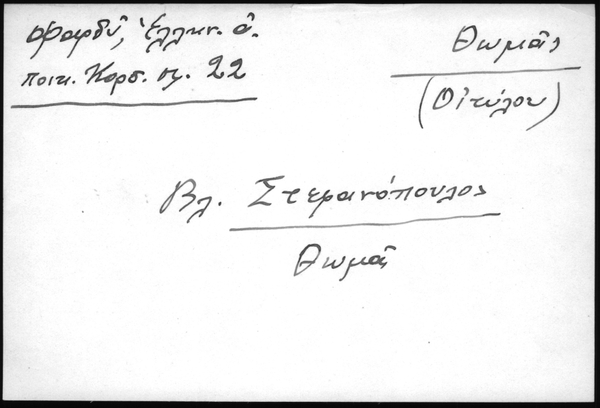 Φαρδῦ, Ἑλλην. ἀ.
ποικ. Κορσ. σ. 22
Θωμᾶς
(Οἰτύλου)
Βλ. Στεφανόπουλος
Θωμᾶς